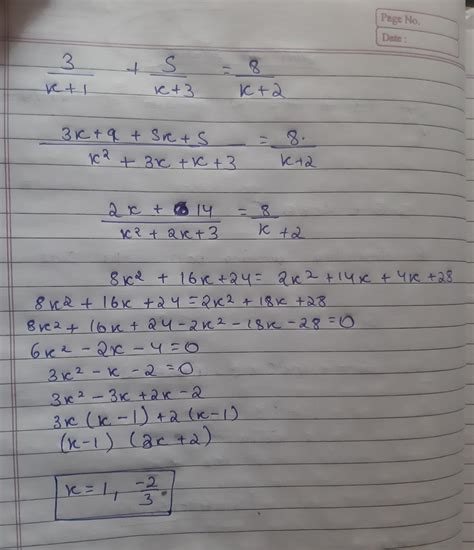 Page No.
Date :
3/(x+1) + 5/(x+3) = 8/(x+2)
(3x+9 + 5x+5)/(x² + 3x + x + 3) = 8/(x+2)
(2x + 14)/(x² + 2x + 3) = 8/(x+2)
8x² + 16x + 24 = 2x² + 14x + 4x + 28
8x² + 16x + 24 = 2x² + 18x + 28
8x² + 16x + 24 - 2x² - 18x - 28 = 0
6x² - 2x - 4 = 0
3x² - x - 2 = 0
3x² - 3x + 2x - 2
3x (x - 1) + 2 (x - 1)
(x - 1) (3x + 2)
x = 1, -2/3